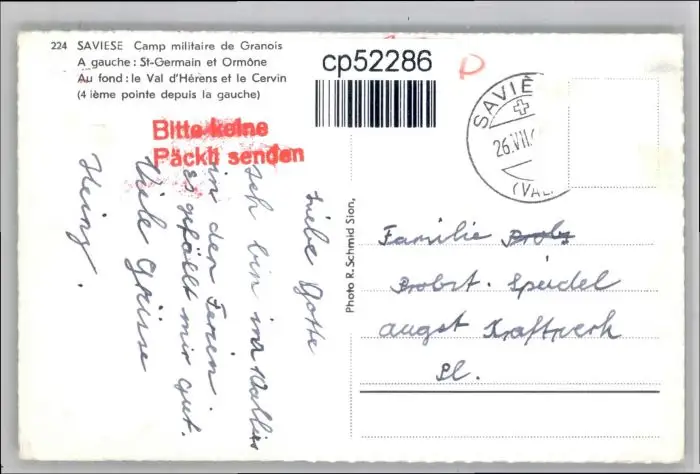 224 SAVIESE Camp militaire de Granois
A gauche : St-Germain et Ormône
Au fond : le Val d'Hérens et le Cervin
(4 ième pointe depuis la gauche)
cp52286
Bitte keine
Päckli senden
Liebe Gotte
Ich bin im Wallis
in den Ferien.
Es gefällt mir gut.
Viele Grüsse
Heinz.
Photo R. Schmid Sion,
SAVIÈ
26.VII.
(VAL
Familie Probs
Probst. Speidel
Augst Kraftwerk